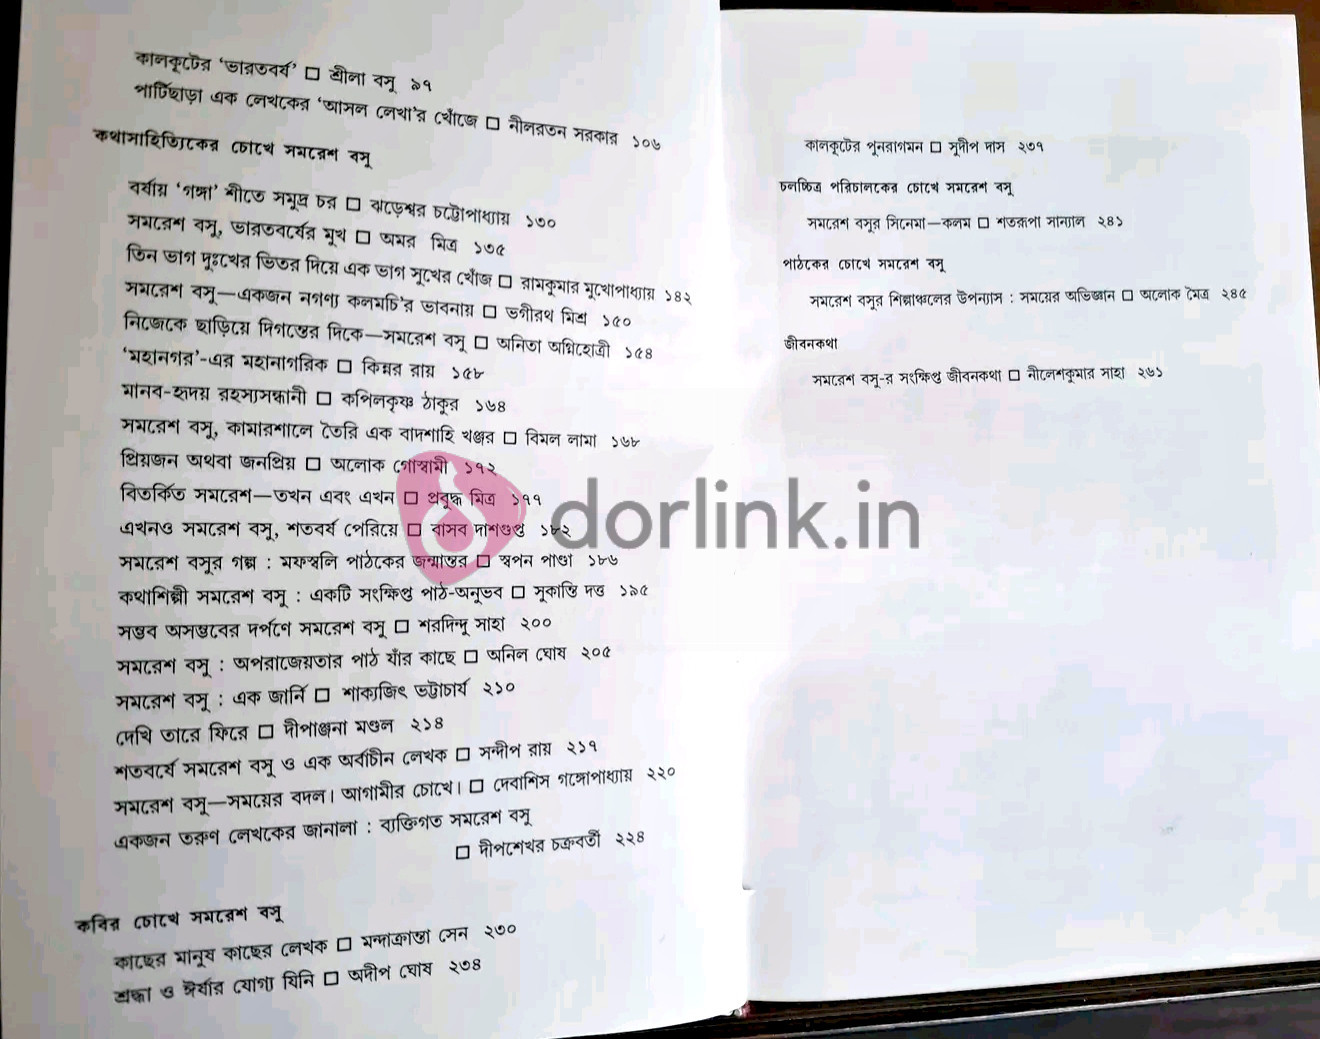 কালকূটের ‘ভারতবর্ষ’ □ শ্রীলা বসু ৯৭
পার্টিছাড়া এক লেখকের ‘আসল লেখা’র খোঁজে □ নীলরতন সরকার ১০৬
কথাসাহিত্যিকের চোখে সমরেশ বসু
বর্ষায় ‘গঙ্গা’ শীতে সমুদ্র চর □ ঝড়েশ্বর চট্টোপাধ্যায় ১৩০
সমরেশ বসু, ভারতবর্ষের মুখ □ অমর মিত্র ১৩৫
তিন ভাগ দুঃখের ভিতর দিয়ে এক ভাগ সুখের খোঁজ □ রামকুমার মুখোপাধ্যায় ১৪২
সমরেশ বসু—একজন নগণ্য কলমচি’র ভাবনায় □ ভগীরথ মিশ্র ১৫০
নিজেকে ছাড়িয়ে দিগন্তের দিকে—সমরেশ বসু □ অনিতা অগ্নিহোত্রী ১৫৪
‘মহানগর’-এর মহানাগরিক □ কিন্নর রায় ১৫৮
মানব-হৃদয় রহস্যসন্ধানী □ কপিলকৃষ্ণ ঠাকুর ১৬৪
সমরেশ বসু, কামারশালে তৈরি এক বাদশাহি খঞ্জর □ বিমল লামা ১৬৮
প্রিয়জন অথবা জনপ্রিয় □ অলোক গোস্বামী ১৭২
বিতর্কিত সমরেশ—তখন এবং এখন □ প্রবুদ্ধ মিত্র ১৭৭
এখনও সমরেশ বসু, শতবর্ষ পেরিয়ে □ বাসব দাশগুপ্ত ১৮২
সমরেশ বসুর গল্প : মফস্বলি পাঠকের জন্মান্তর □ স্বপন পাণ্ডা ১৮৬
কথাশিল্পী সমরেশ বসু : একটি সংক্ষিপ্ত পাঠ-অনুভব □ সুকান্তি দত্ত ১৯৫
সম্ভব অসম্ভবের দর্পণে সমরেশ বসু □ শরদিন্দু সাহা ২০০
সমরেশ বসু : অপরাজেয়তার পাঠ যাঁর কাছে □ অনিল ঘোষ ২০৫
সমরেশ বসু : এক জার্নি □ শাক্যজিৎ ভট্টাচার্য ২১০
দেখি তারে ফিরে □ দীপাঞ্জনা মণ্ডল ২১৪
শতবর্ষে সমরেশ বসু ও এক অর্বাচীন লেখক □ সন্দীপ রায় ২১৭
সমরেশ বসু—সময়ের বদল। আগামীর চোখে। □ দেবাশিস গঙ্গোপাধ্যায় ২২০
একজন তরুণ লেখকের জানালা : ব্যক্তিগত সমরেশ বসু
□ দীপশেখর চক্রবর্তী ২২৪
কবির চোখে সমরেশ বসু
কাছের মানুষ কাছের লেখক □ মন্দাক্রান্তা সেন ২৩০
শ্রদ্ধা ও ঈর্ষার যোগ্য যিনি □ অদীপ ঘোষ ২৩৪
কালকূটের পুনরাগমন □ সুদীপ দাস ২৩৭
চলচ্চিত্র পরিচালকের চোখে সমরেশ বসু
সমরেশ বসুর সিনেমা—কলম □ শতরূপা সান্যাল ২৪১
পাঠকের চোখে সমরেশ বসু
সমরেশ বসুর শিল্পাঞ্চলের উপন্যাস : সময়ের অভিজ্ঞান □ অলোক মৈত্র ২৪৫
জীবনকথা
সমরেশ বসু-র সংক্ষিপ্ত জীবনকথা □ নীলেশকুমার সাহা ২৬১
dorlink.in